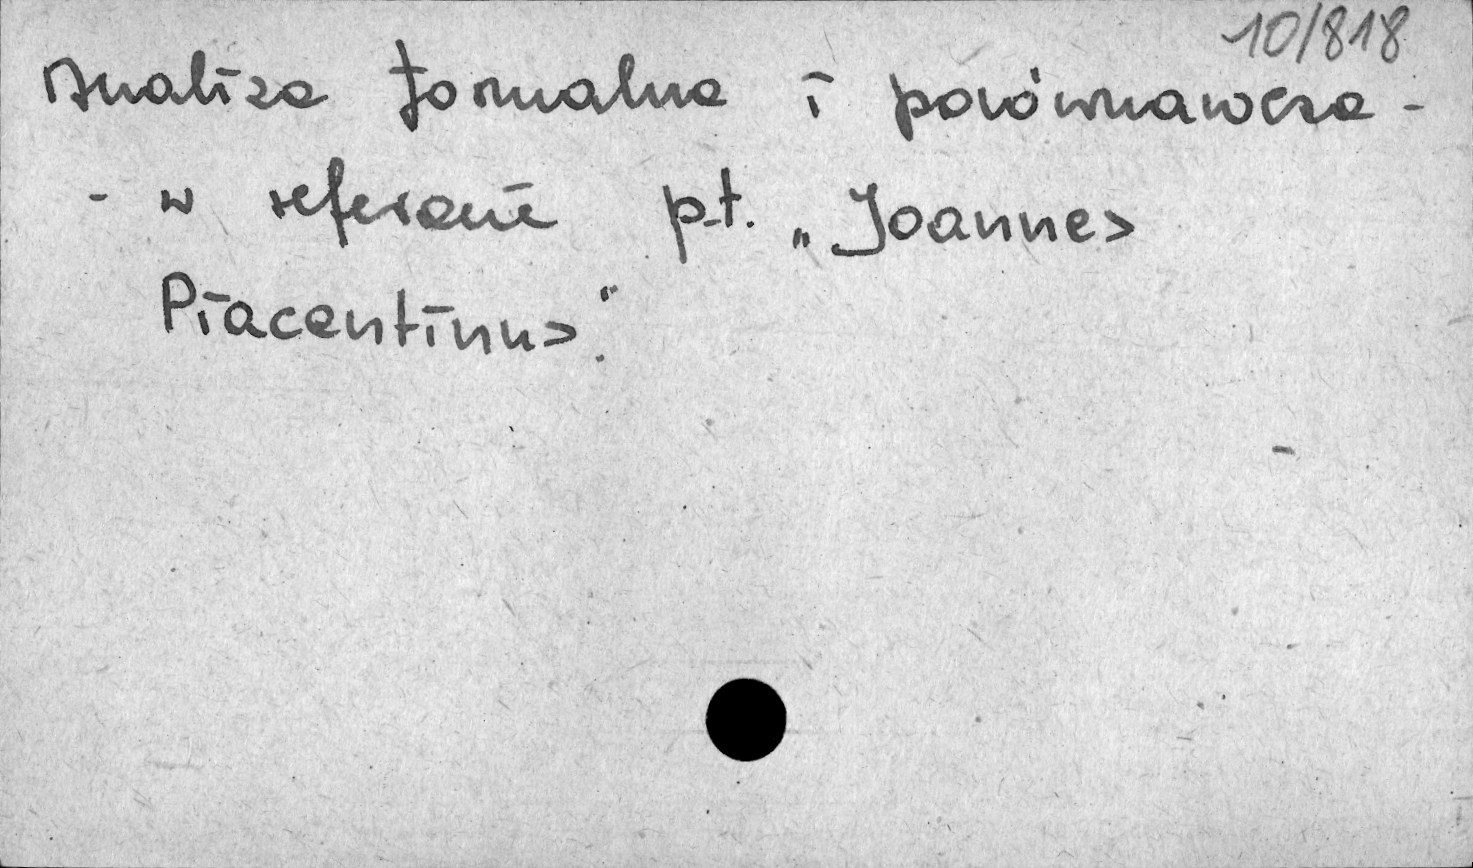 10/818
Analiza formalna i porównawcza -
- w referacie pt. „Joannes
Piacentinus".